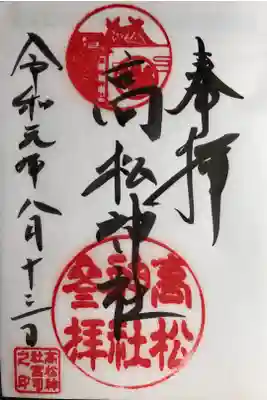 奉拝
髙松神社
令和元年八月十三日
高松
神社
参拝
高松神
社宮司
之印